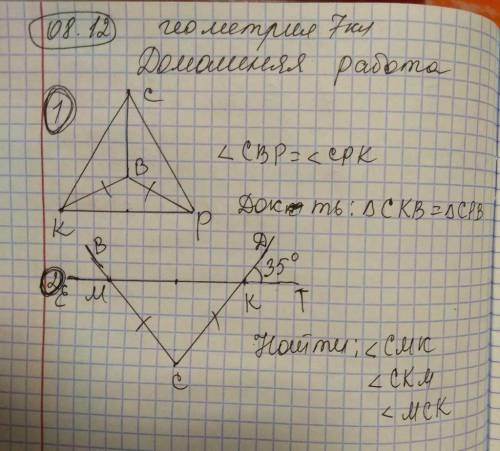 08.12 геометрия 7кл
Домашняя работа
1
C
B
K
P
∠CBP=∠CPK
Док-ть: ΔCKB=ΔCPB
2
B
D
35°
E
M
K
T
C
Найти: ∠CMK
∠CKM
∠MCK